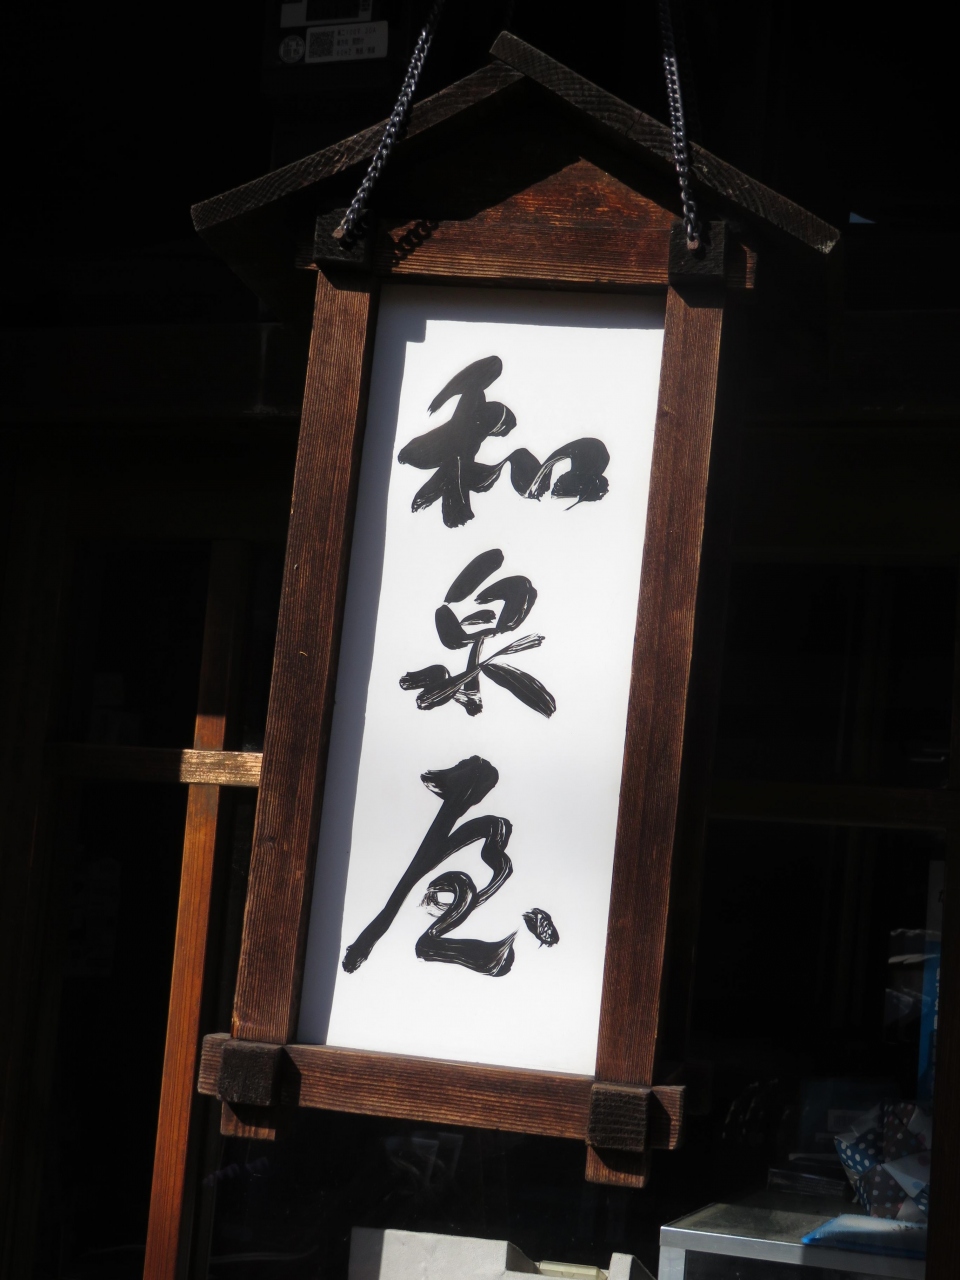 和泉屋